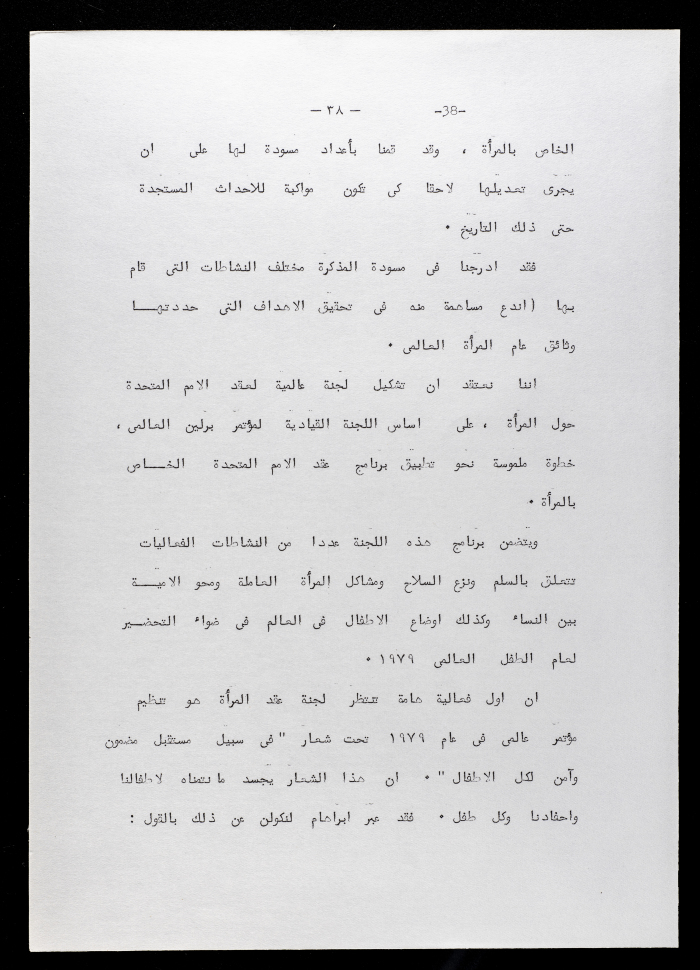 -38- — ٣٨ —
الخاص بالمرأة ، وقد قمنا بأعداد مسودة لها على ان
يجرى تعديلها لاحقا كى تكون مواكبة للاحداث المستجدة
حتى ذلك التاريخ ٠
فقد ادرجنا فى مسودة المذكرة مختلف النشاطات التى قام
بها (اندع مساهمة منه فى تحقيق الاهداف التى حددتهــا
وثائق عام المرأة العالمى ٠
اننا نعتقد ان تشكيل لجنة عالمية لعقد الامم المتحدة
حول المرأة ، على اساس اللجنة القيادية لمؤتمر برلين العالمى ،
خطوة ملموسة نحو تطبيق برنامج عقد الامم المتحدة الخــاص
بالمرأة ٠
ويتضمن برنامج هذه اللجنة عددا من النشاطات الفعاليات
تتعلق بالسلم ونزع السلاح ومشاكل المرأة العاملة ومحو الاميــة
بين النساء وكذلك اوضاع الاطفال فى العالم فى ضواء التحضــير
لعام الطفل العالمى ١٩٧٩ ٠
ان اول فعالية هامة تنتظر لجنة عقد المرأة هو تنظيم
مؤتمر عالمى فى عام ١٩٧٩ تحت شعار " فى سبيل مستقبل مضمون
وآمن لكل الاطفال " ٠ ان هذا الشعار يجسد ما نتمناه لاطفالنا
واحفادنا وكل طفل ٠ فقد عبر ابراهام لنكولن عن ذلك بالقول :